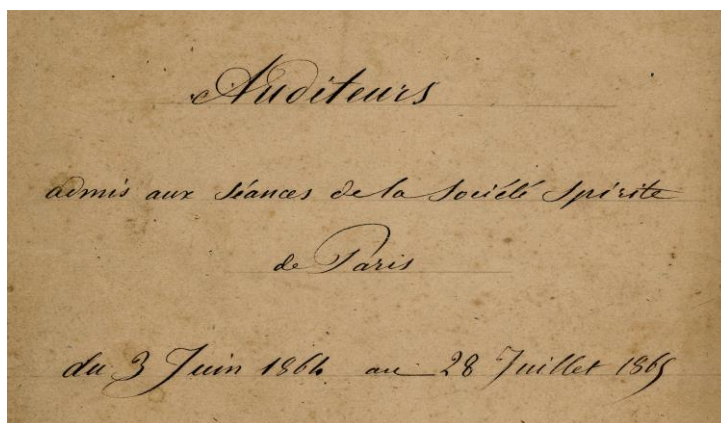 Auditeurs
admis aux séances de la Société Spirite
de Paris
du 3 Juin 1864 au 28 Juillet 1865